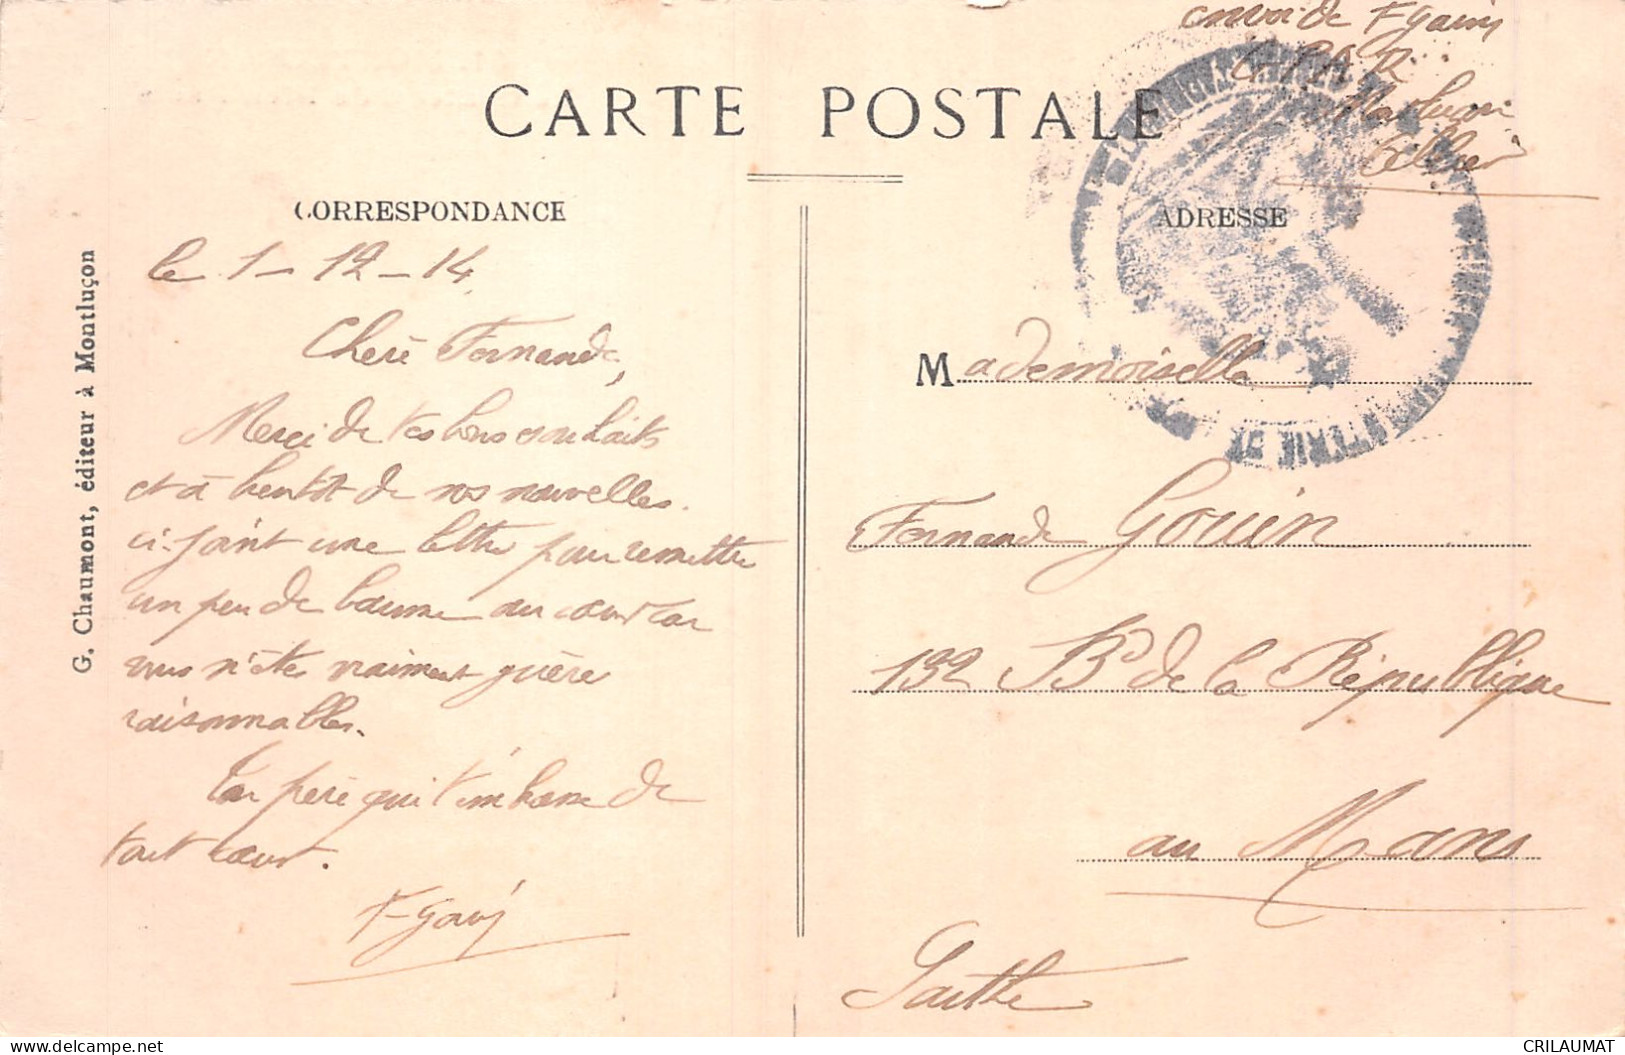 envoi de F. Gouin
CARTE POSTALE
CORRESPONDANCE
ADRESSE
G. Chaumont, éditeur à Montluçon
le 1-12-14
Chere Fernande,
Merci de tes bons souhaits
et à bientôt de vos nouvelles.
ci-joint une lettre pour remettre
un peu de baume au coeur car
vous n'êtes vraiment guère
raisonnables.
Ton père qui t'embrasse de
tout coeur.
Mademoiselle
Fernande Gouin
132 Bd de la République
au Mans
Sarthe
CRILAUMAT